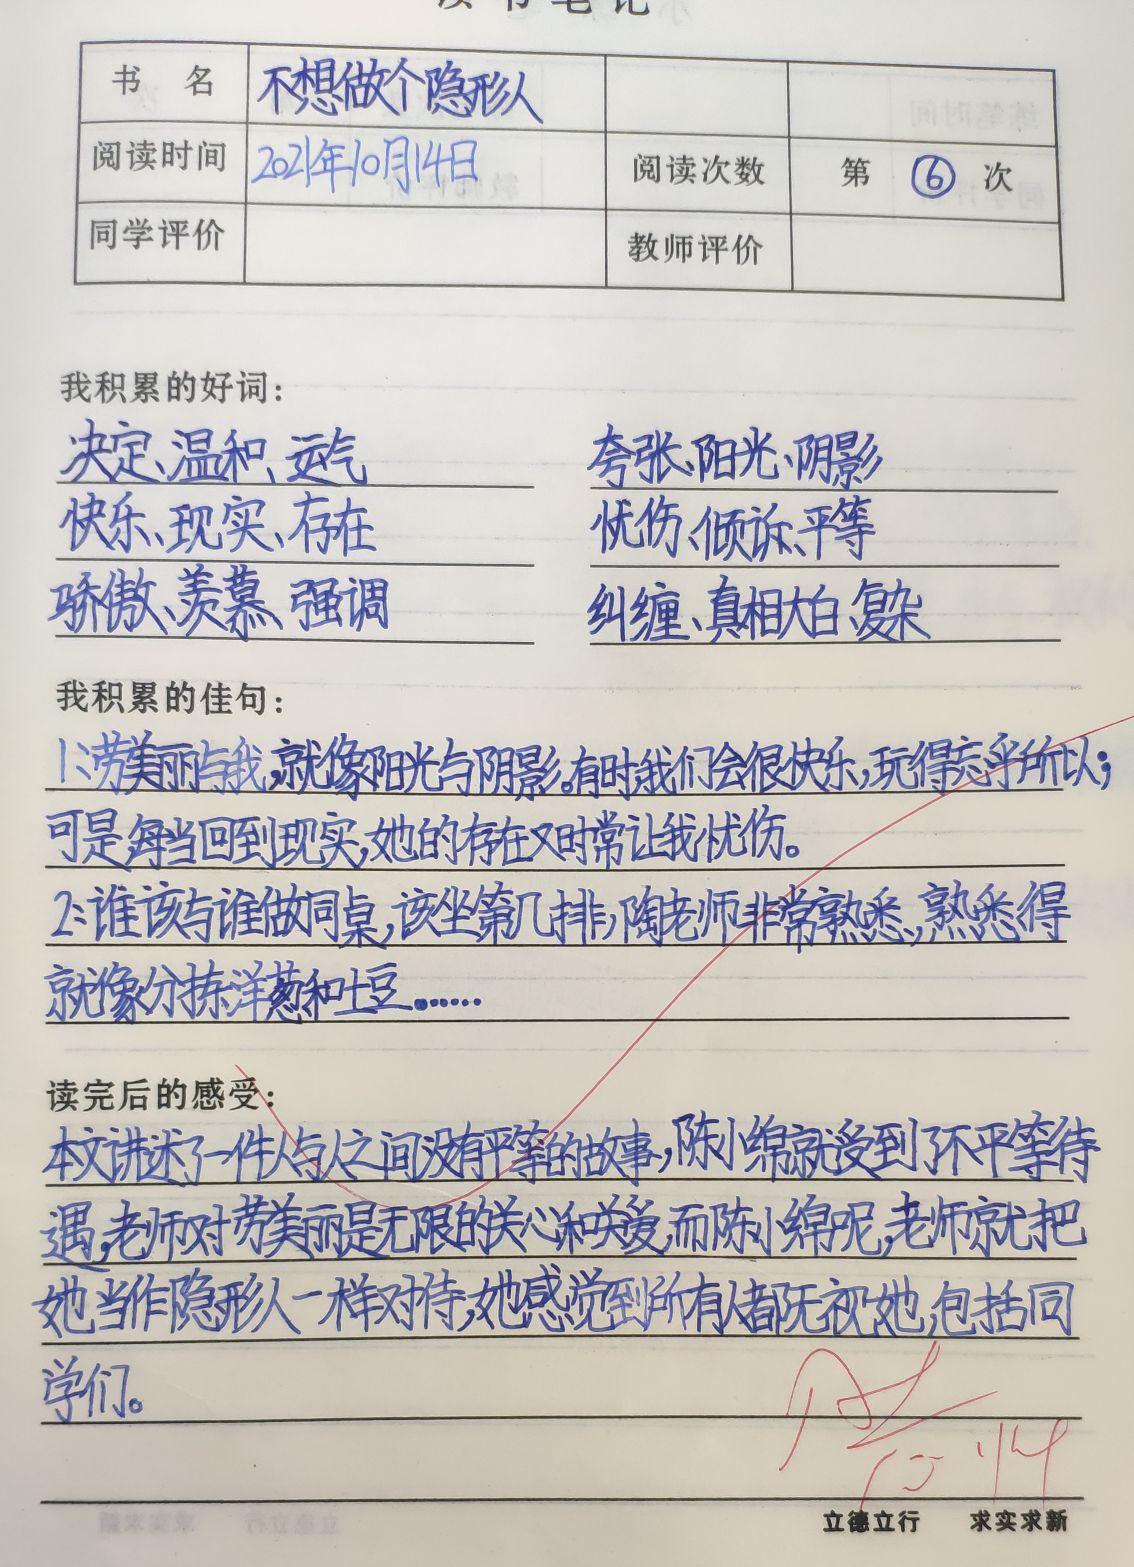 读书笔记
书 名 不想做个隐形人
阅读时间 2021年10月14日 阅读次数 第 ⑥ 次
同学评价 教师评价
我积累的好词：
决定、温和、运气 夸张、阳光、阴影
快乐、现实、存在 忧伤、倾诉、平等
骄傲、羡慕、强调 纠缠、真相大白、复杂
我积累的佳句：
1、:劳美丽与我,就像阳光与阴影。有时我们会很快乐,玩得忘乎所以;
可是,每当回到现实,她的存在又时常让我忧伤。
2、:谁该与谁做同桌,该坐第几排,陶老师非常熟悉,熟悉得
就像分拣洋葱和土豆……
读完后的感受：
本文讲述了一件人与人之间没有平等的故事,陈小绵就受到了不平等待
遇,老师对劳美丽是无限的关心和关爱,而陈小绵呢,老师就把
她当作隐形人一样对待,她感觉到所有人都无视她,包括同
学们。
10.14
立德立行 求实求新